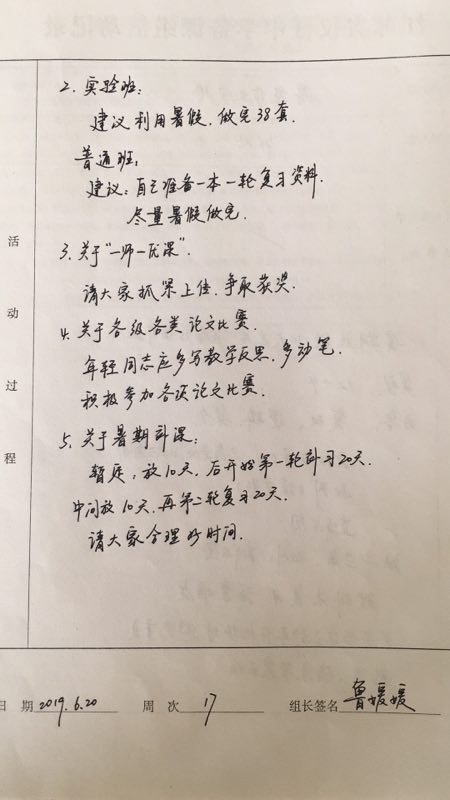 2. 实验班：
建议利用暑假，做完38套.
普通班：
建议：自己准备一本一轮复习资料.
尽量暑假做完.
3. 关于“一师一优课”.
请大家抓紧上传，争取获奖.
4. 关于各级各类论文比赛.
年轻同志应多写教学反思，多动笔.
积极参加各项论文比赛.
5. 关于暑期补课：
暂定，放10天，后开始第一轮补习20天.
中间放10天，再第二轮复习20天.
请大家合理好时间.
活
动
过
程
日 期 2019.6.20 周 次 17 组长签名 鲁媛媛